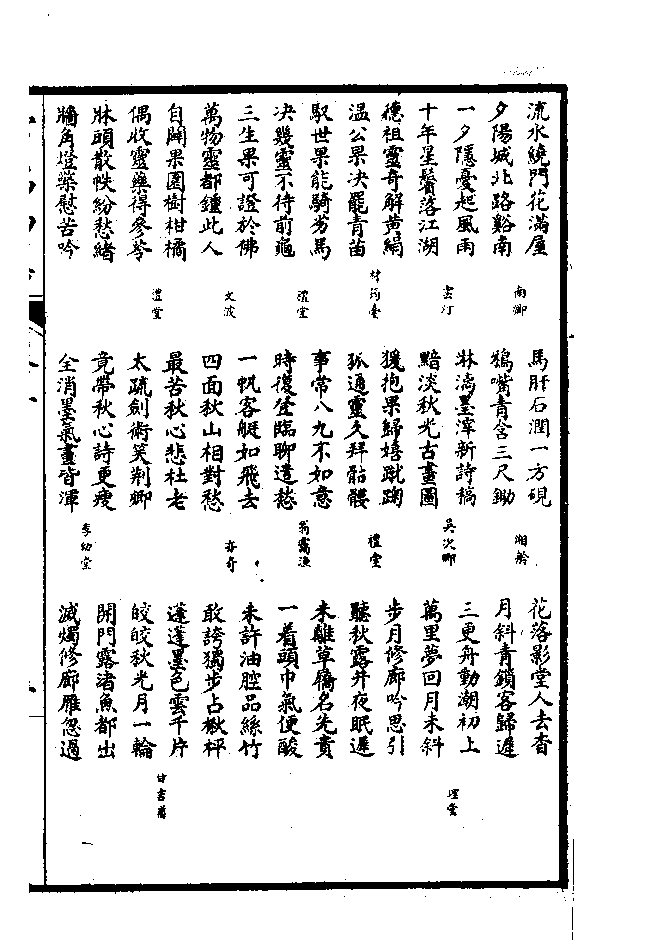 流水繞門花滿屋
馬肝石潤一方硯
花落影堂人去杳
夕陽城北路谿南
南卿
鴉嘴青含三尺鋤
湘舲
月斜青鎖客歸遲
一夕隱憂起風雨
淋漓墨渖新詩稿
三更舟動潮初上
十年星鬢落江湖
雲汀
黯淡秋光古畫圖
吳次卿
萬里夢回月未斜
理堂
德祖靈奇解黃絹
猨抱果歸嬉蹴踘
步月修廊吟思引
溫公果決罷青苗
狐通靈久拜骷髏
禮堂
聽秋露井夜眠遲
馭世果能騎劣馬
事常八九不如意
未離草屩名先賣
決幾靈不待前龜
澧堂
時復登臨聊遣愁
一着頭巾氣便酸
三生果可證於佛
一帆客艇如飛去
未許油腔品絲竹
萬物靈都鍾此人
文波
四面秋山相對愁
亦奇
敢誇獨步占楸枰
自闢果園樹柑橘
最苦秋心悲杜老
蓬蓬墨色雲千片
偶收靈藥得參苓
澧堂
太疏劍術笑荆卿
皎皎秋光月一輪
牀頭散帙紛愁緒
竟帶秋心詩更瘦
開門露渚魚都出
牆角燈藥慰苦吟
全消墨氣畫皆渾
李幼堂
滅燭修廊雁忽過